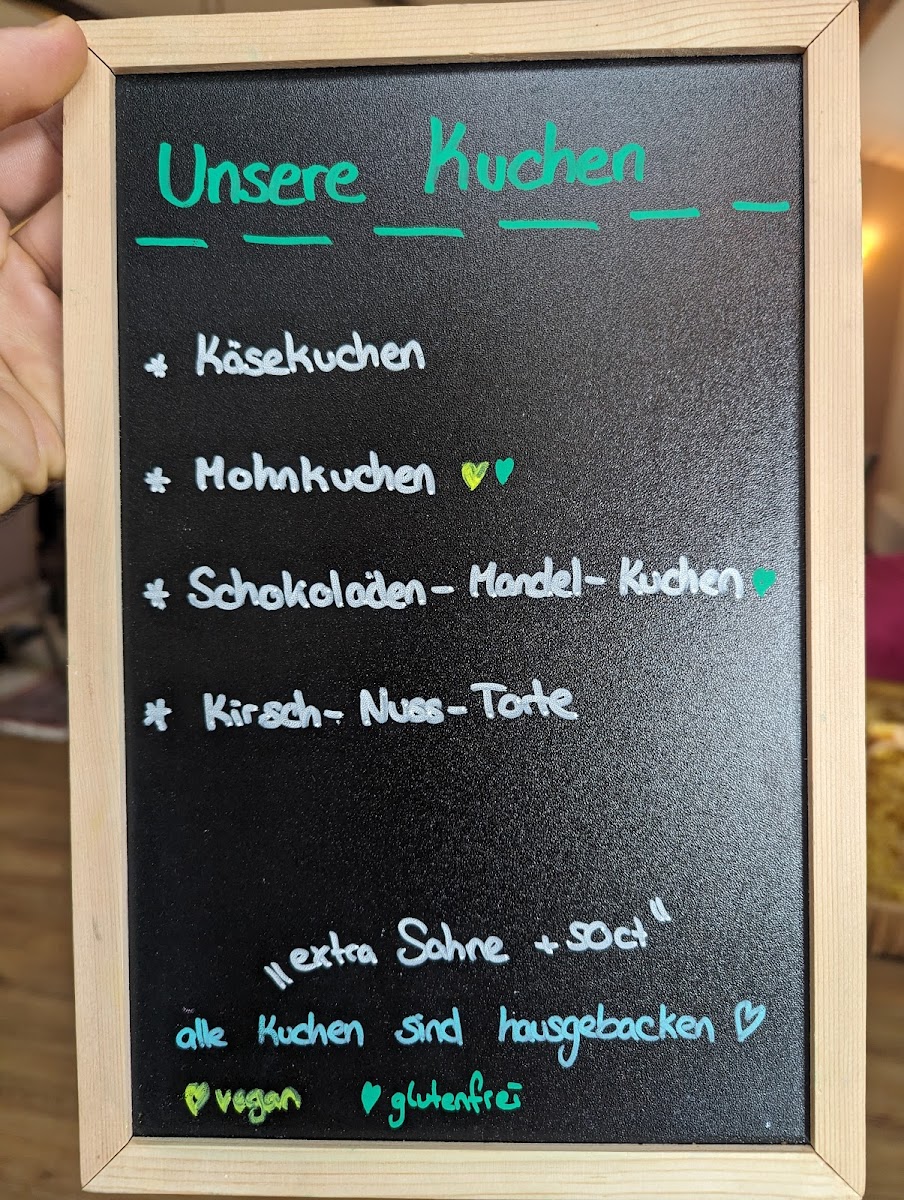 Unsere Kuchen
* Käsekuchen
* Mohnkuchen 💛💚
* Schokoladen-Mandel-Kuchen 💚
* Kirsch-Nuss-Torte
„extra Sahne + 50ct"
alle Kuchen sind hausgebacken ♡
💛 vegan 💚 glutenfrei